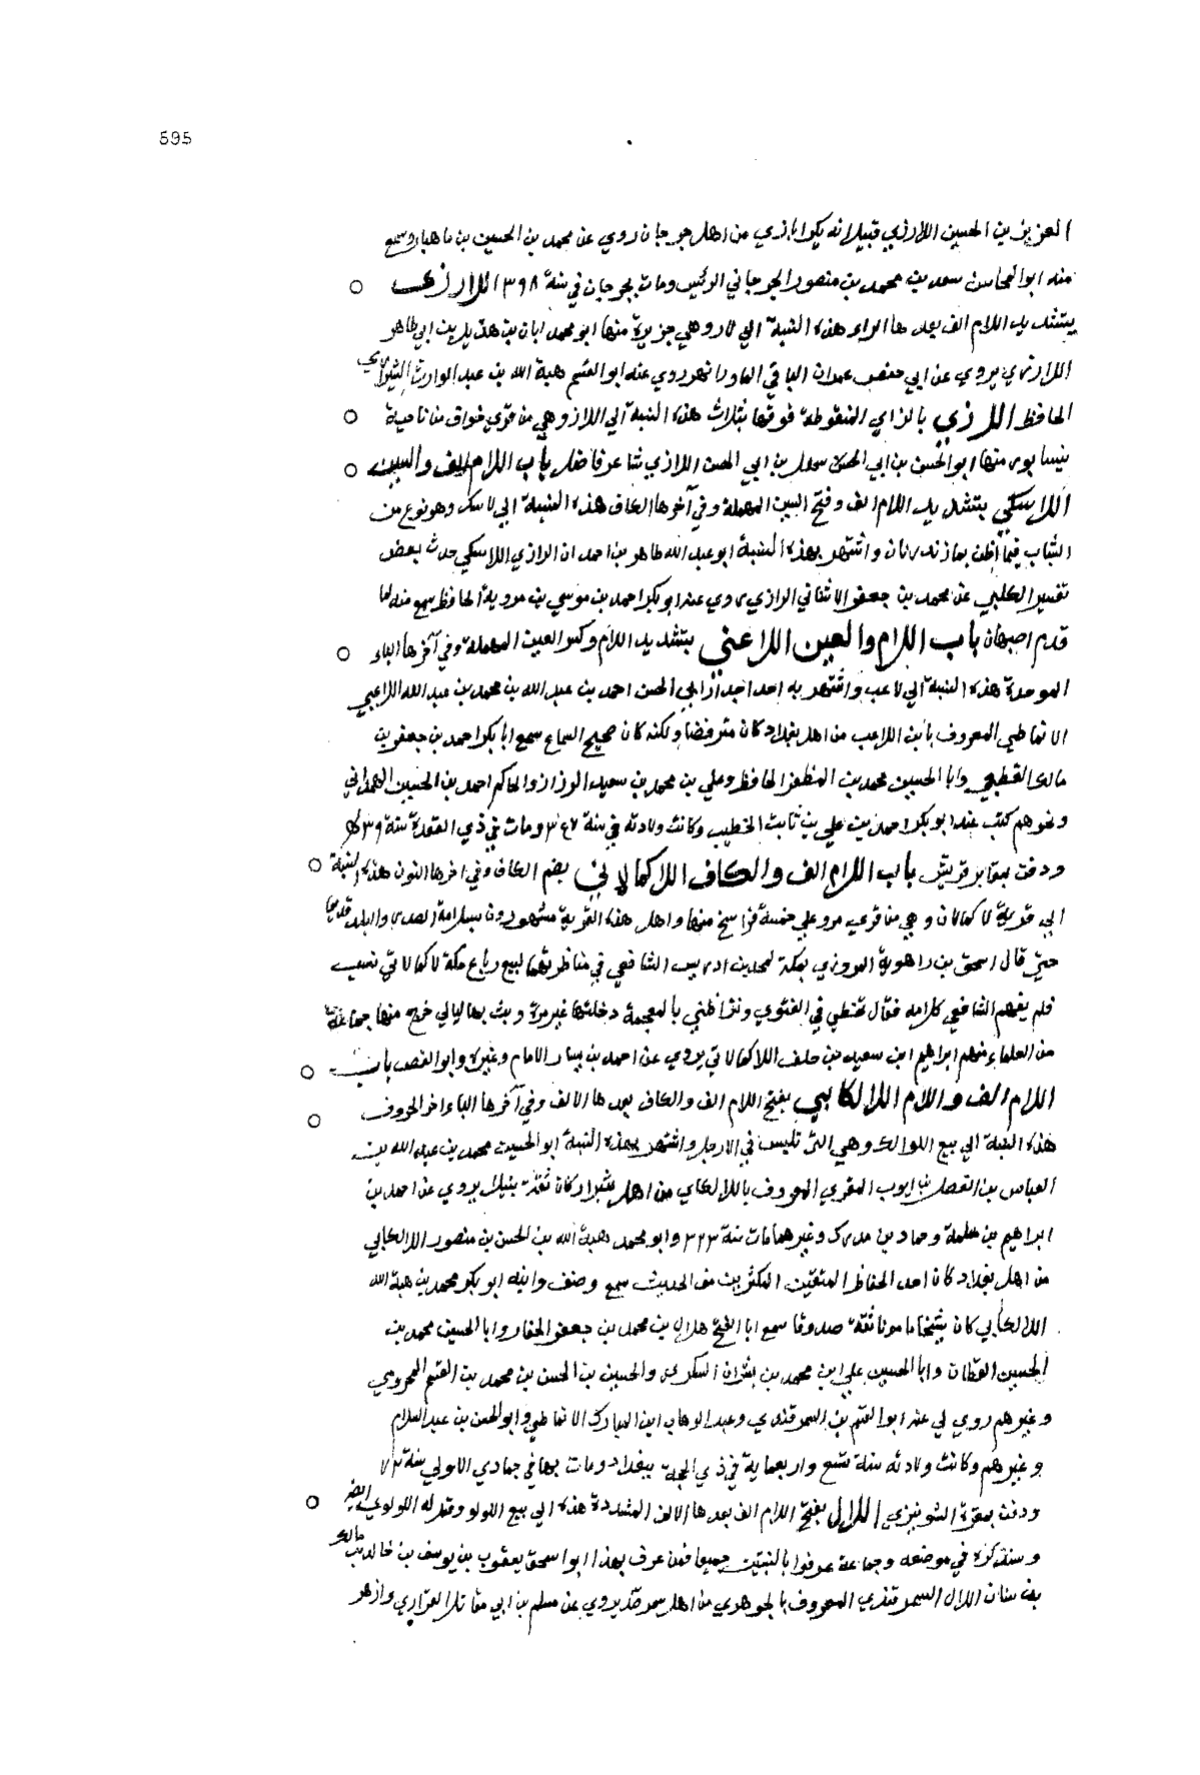 595
العزيز بن الحسين اللارزي قيل انه يكرابازي من اهل جرجان روي عن محمد بن الحسين بن ماهيار وسمع
منه ابو المحاسن سعد بن محمد بن منصور الجرجاني الرئيس ومات بجرجان في سنة ٣٩٨ اللارزي
بتشديد اللام الف بعدها الراء هذه النسبة الي لار وهي جزيرة منها ابو محمد ابان بن هذيل بن ابي طاهر
اللارزي يروي عن ابي حفص عمران الباقي الماورانهر روي عنه ابو القسم هبة الله بن عبد الوارث الشيرازي
الحافظ اللارزي بالزاي المنقوطة فوقها بثلاث هذه النسبة الي اللاز وهي من قري خواق من ناحية
نيسابور منها ابو الحسن بن ابي الحسن سهل بن ابي الحسن اللازي شاعر فاضل باب اللام الف والسين
اللاسكي بتشديد اللام الف وفتح السين المهملة وفي آخرها الكاف هذه النسبة الي لاسك وهو نوع من
الشاب فيما أظن بمازندران واشتهر بهذه النسبة ابو عبد الله طاهر بن احمد ان الرازي اللاسكي حدث ببعض
تفسير الكلبي عن محمد بن جعفر الاشناني الرازي روي عنه ابو بكر احمد بن موسي بن مردوية الحافظ سمع منه لما
قدم اصبهان باب اللام والعين اللاعني بتشديد اللام وكسر العين المهملة وفي آخرها الباء
الموحدة هذه النسبة الي لاعب واشتهر به احد اجداد ابي الحسن احمد بن عبد الله بن محمد بن عبد الله اللاعبي
الانماطي المعروف بابن اللاعب من اهل بغداد كان مترفضا ولكنه كان صحيح السماع سمع ابا بكر احمد بن جعفر بن
مالك القطيعي وابا الحسين محمد بن المظفر الحافظ وعلي بن محمد بن سعيد الرزاز والحاكم احمد بن الحسين الهمداني
وغيرهم كتب عنه ابو بكر احمد بن علي بن ثابت الخطيب وكانت ولادته في سنة ٣٤٧ ومات في ذي القعدة سنة ٤٣٩
ودفن بمقابر قريش باب اللام الف والكاف اللاكمالاني بضم الكاف وفي اخرها النون هذه النسبة
الي قرية لاكمالان وهي من قري مرو علي خمسة فراسخ منها واهل هذه القرية مشهورون بسلامة الصدر والبله قديما
حتي قال اسحق بن راهوية المروزي بمكة لمحمد بن ادريس الشافعي في مناظرتهما لبيع رباع مكة لاكمالاني نسيب
فلم يفهم الشافعي كلامه فقال تخطي في الفتوي وتراطني بالعجمة دخلتها غير مرة وبت بها ليالي خرج منها جماعة
من العلماء منهم ابراهيم ابن سعيد بن خلف اللاكمالاني يروي عن احمد بن سيار الامام وغيره وابو الفضل باب
اللام الف واللام اللالكايي بفتح اللام الف والكاف بعدها الالف وفي آخرها الياء اخر الحروف
هذه النسبة الي بيع اللوالك وهي التي تلبس في الارجل واشتهر بهذه النسبة ابو الحسين محمد بن عبد الله بن
العباس بن الفضل بن ايوب المقري المعروف باللالكاي من اهل شيراز كان ثقة نبيلا يروي عن احمد بن
ابراهيم بن سلمة وحماد بن مدرك وغيرهما مات سنة ٣٢٣ وابو محمد هبة الله بن الحسن بن منصور اللالكايي
من اهل بغداد كان احد الحفاظ المتقنين المكثرين من الحديث سمع وصنف وابنه ابو بكر محمد بن هبة الله
اللالكايي كان شيخا مامونا ثقة صدوقا سمع ابا الفتح هلال بن محمد بن جعفر الحفار وابا الحسين محمد بن
الحسين القطان وابا الحسين علي ابن محمد بن بشران السكري والحسين بن الحسن بن محمد بن القسم المخرومي
وغيرهم روي لي عنه ابو القسم بن السمرقندي وعبد الوهاب ابن المبارك الانماطي وابو الحسن بن عبد السلام
وغيرهم وكانت ولادته سنة تسع واربعماية في ذي الحجة ببغداد ومات بها في جمادي الاولي سنة ٤٧٢
ودفن بمقبرة الشونيزي اللال بفتح اللام الف بعدها الالف المشددة هذه الي بيع اللولو ومثله اللولوي
وسنذكره في موضعه وجماعة عرفوا بالنسبتين جميعا فمن عرف بهذا ابو اسحق يعقوب بن يوسف بن خالد بن مالك
بن سنان اللال السمرقندي المعروف بالجوهري من اهل سمرقند يروي عن مسلم بن ابي مقاتل الفزاري وازهر